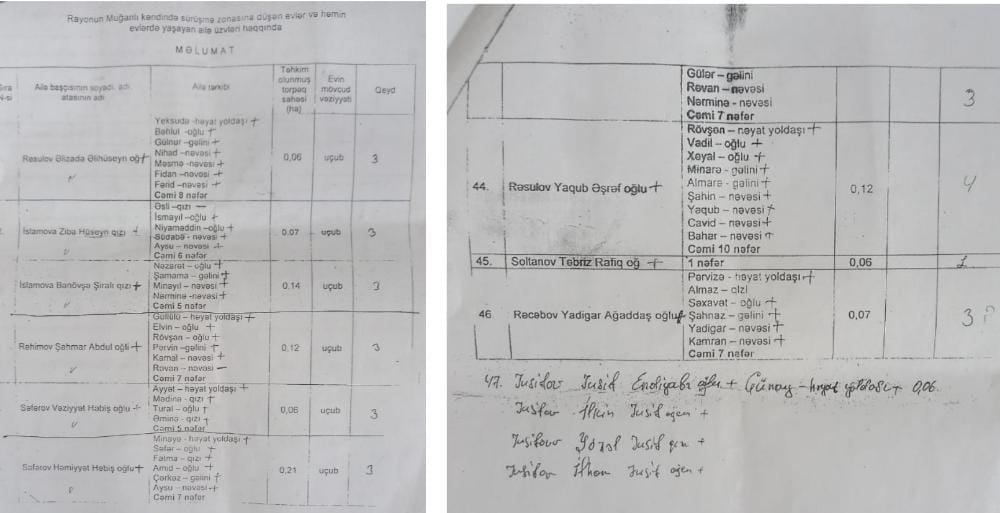 Rayonun Muğanlı kəndində sürüşmə zonasına düşən evlər və həmin
evlərdə yaşayan ailə üzvləri haqqında
MƏLUMAT
Sıra
N-si
Ailə başçısının soyadı, adı,
atasının adı
Ailə tərkibi
Təhkim
olunmuş
torpaq
sahəsi
(ha)
Evin
mövcud
vəziyyəti
Qeyd
Rəsulov Əlizadə Əlihüseyn oğ +
Yeksuda -həyat yoldaşı +
Bəhlul -oğlu +
Gülnur -gəlini +
Nihad -nəvəsi +
Məsmə -nəvəsi +
Fidan -nəvəsi +
Fərid -nəvəsi +
Cəmi 8 nəfər
0,06 uçub 3
İslamova Ziba Hüseyn qızı +
Əsli -qızı —
İsmayıl -oğlu +
Niyaməddin -oğlu +
Südabə - nəvəsi +
Aysu – nəvəsi +
Cəmi 6 nəfər
0,07 uçub 3
İslamova Bənövşə Şirəli qızı +
Nəzarət - oğlu +
Şamama – gəlini +
Minayıl – nəvəsi +
Nərminə -nəvəsi +
Cəmi 5 nəfər
0,14 uçub 3
Rəhimov Şahmar Abdul oğli +
Güllülü – həyat yoldaşı +
Elvin – oğlu +
Rövşən - oğlu +
Pərvin –gəlini +
Kamal – nəvəsi +
Rəvan – nəvəsi —
Cəmi 7 nəfər
0,12 uçub 3
Səfərov Vəziyyət Həbiş oğlu +
Ayyət – həyat yoldaşı +
Mədinə - qızı +
Tural – oğlu +
Əminə - qızı +
Cəmi 5 nəfər
0,06 uçub 3
Səfərov Həmiyyət Həbiş oğlu +
Minayə - həyat yoldaşı +
Səfər – oğlu +
Fatma – qızı +
Amid – oğlu +
Çərkəz – gəlini +
Aysu – nəvəsi +
Cəmi 7 nəfər
0,21 uçub 3
Gülər – gəlini
Rəvan – nəvəsi
Nərminə - nəvəsi
Cəmi 7 nəfər
3
44. Rəsulov Yaqub Əşrəf oğlu +
Rövşən – həyat yoldaşı +
Vadil – oğlu +
Xəyal – oğlu +
Minarə - gəlini +
Almarə - gəlini +
Şahin – nəvəsi +
Yaqub – nəvəsi +
Cavid – nəvəsi +
Bahar – nəvəsi +
Cəmi 10 nəfər
0,12 4
45. Soltanov Təbriz Rafiq oğ + 1 nəfər 0,06 1
46. Rəcəbov Yadigar Ağaddaş oğlu +
Pərvizə - həyat yoldaşı +
Almaz – qızı
Səxavət – oğlu +
Şahnaz – gəlini +
Yadigar – nəvəsi +
Kamran – nəvəsi +
Cəmi 7 nəfər
0,07 3
47. Yusifov Yusif oğlu + Günay – həyat yoldaşı + 0,06
Yusifov İlkin Yusif +
Yusifov Yusif +
Yusifov İlham Yusif +